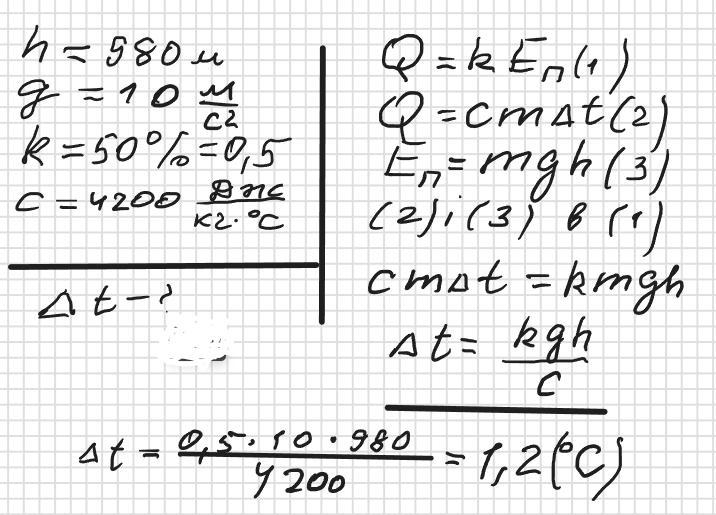 h = 980 м
g = 10 м/с2
k = 50% = 0,5
c = 4200 Дж/кг·°С
Δt - ?
Q = k Eп (1)
Q = cmΔt (2)
Eп = mgh (3)
(2) і (3) в (1)
cmΔt = kmgh
Δt = kgh/c
Δt = 0,5·10·980/4200 = 1,2(°C)